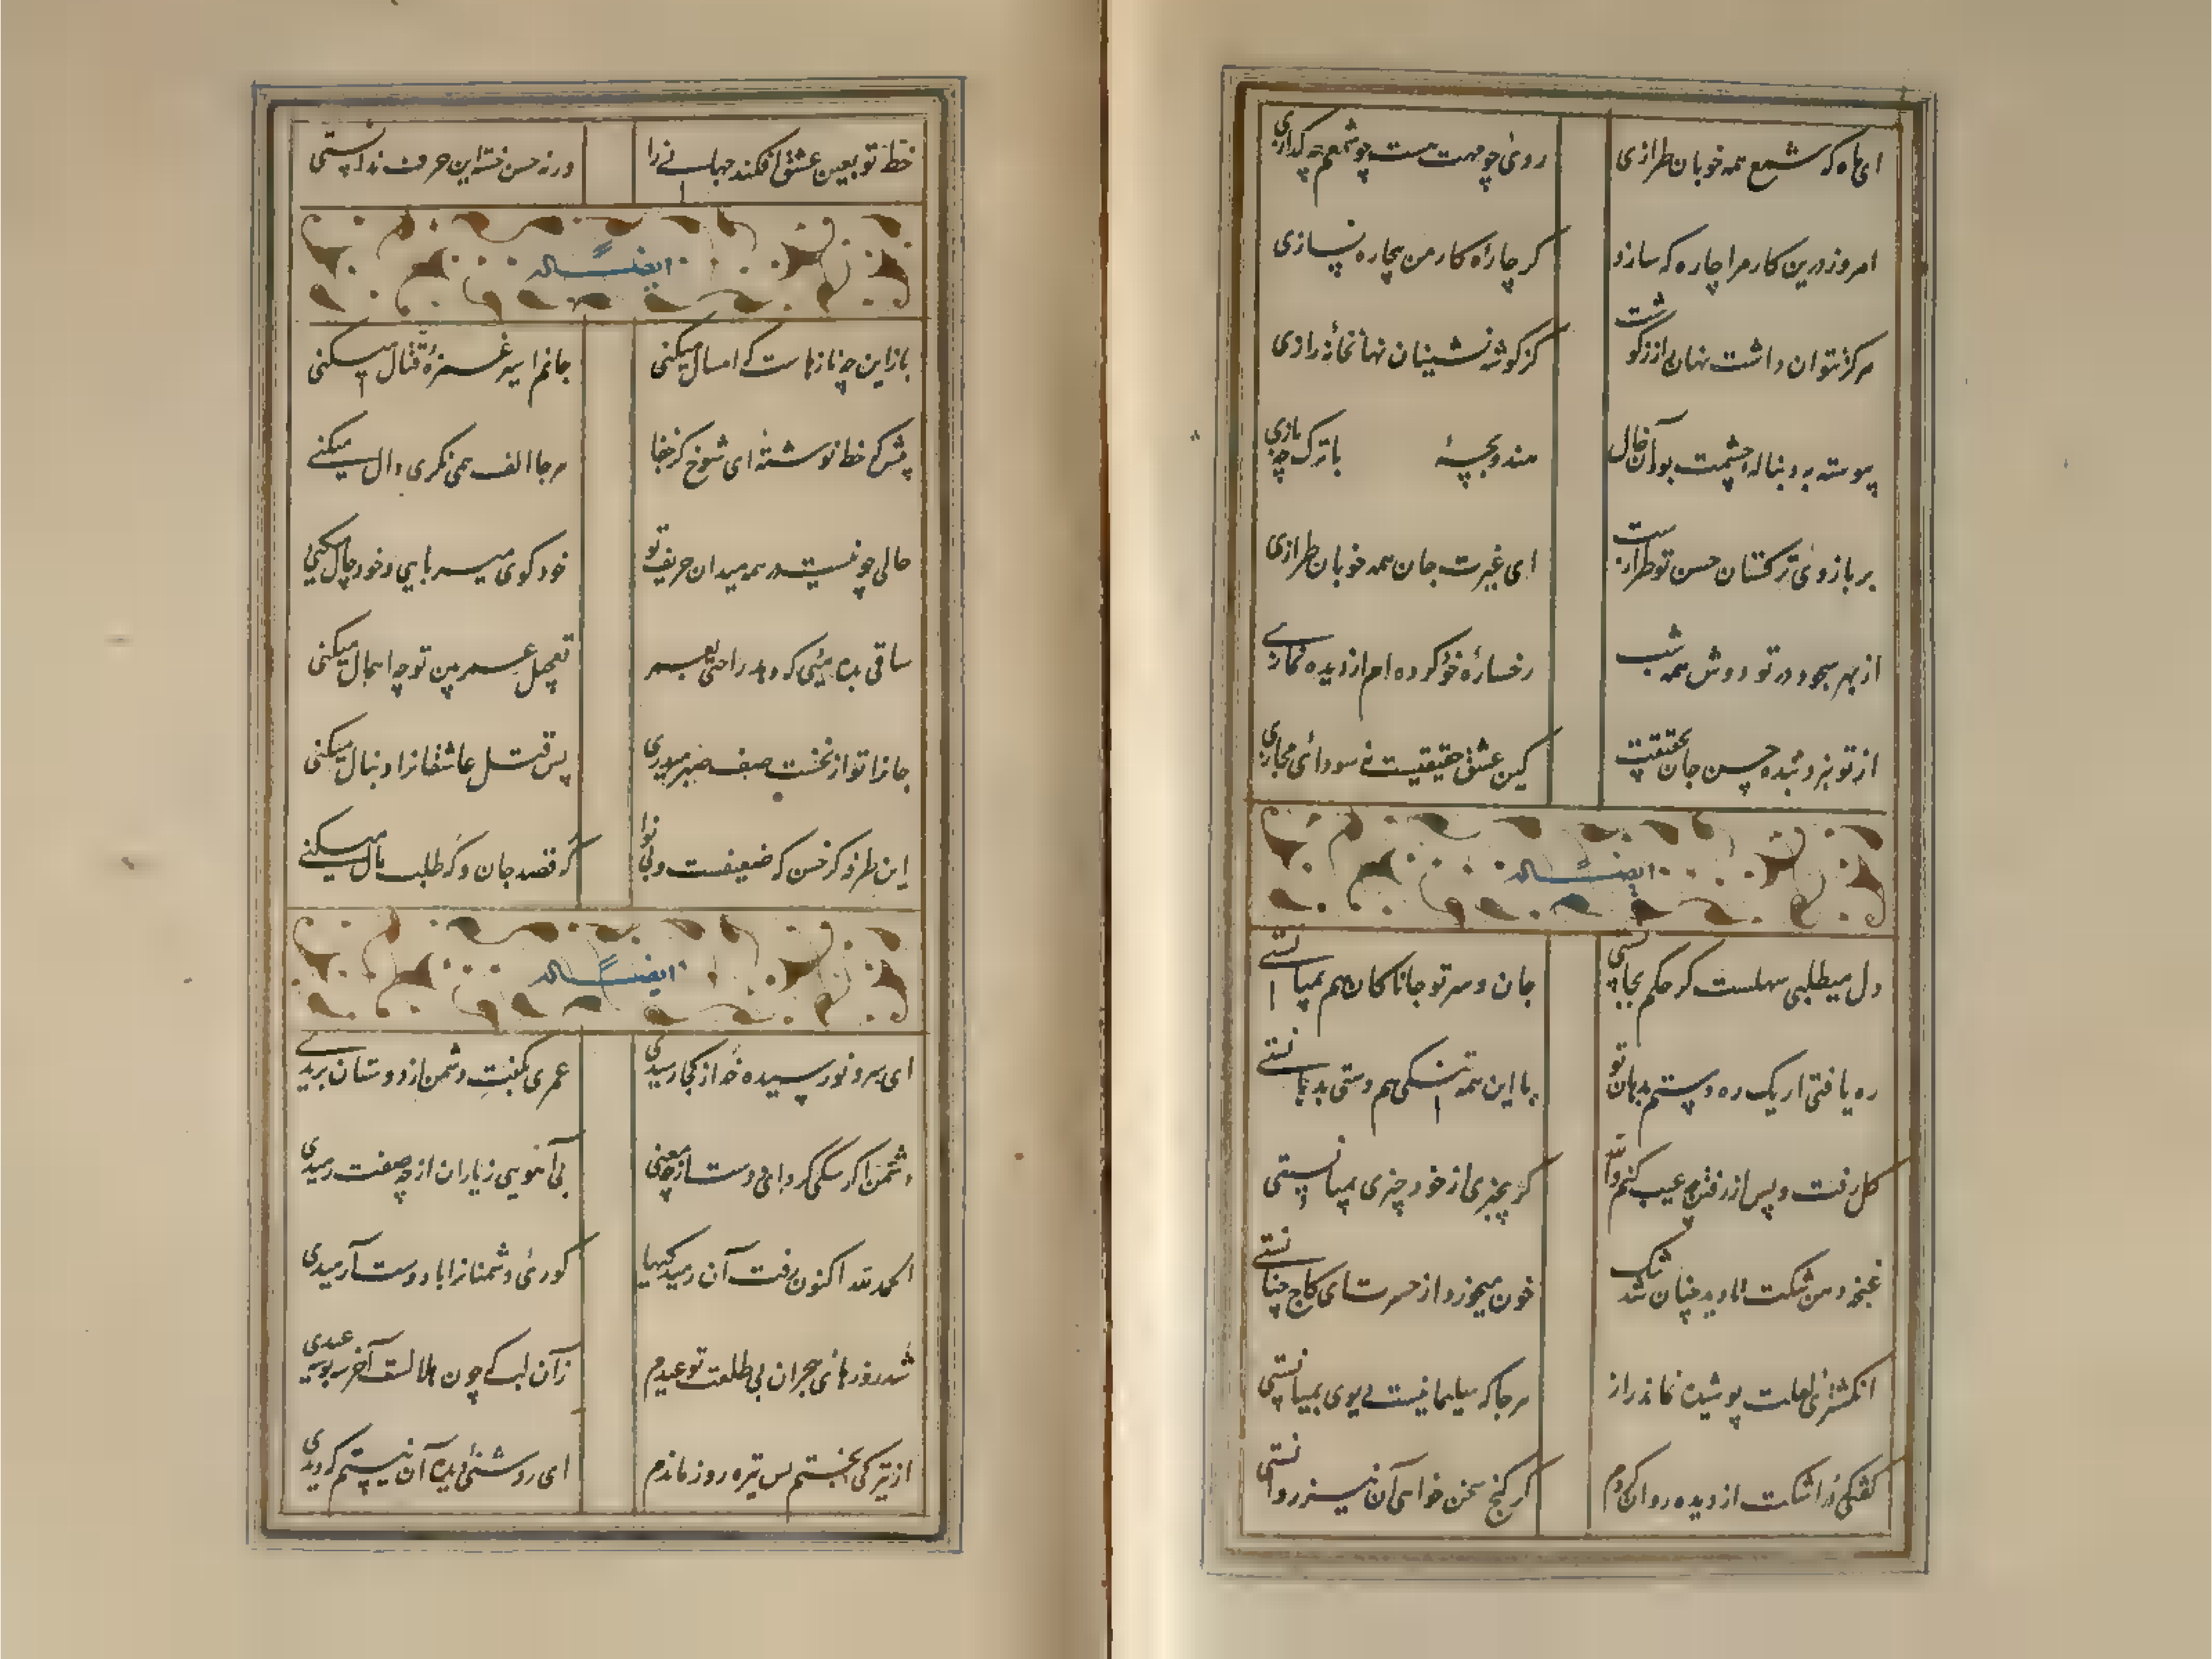 ای ماه که شمع همه خوبان طرازی روئی چو مهت هست چو شمعم چه گدازی
امروز درین کار مرا چاره که سازد گر چارۀ کار من بیچاره نسازی
هرگز نتوان داشت نهان راز ز گوشت کز گوشه نشینان نهانخانۀ رازی
پیوسته به دنباله چشمت بود آن خال هندو بچۀ با ترک چه بازی
بر بازوئی ترکستان حسن تو طرازست ای غیرت جان همه خوبان طرازی
از بهر سجود در تو دوش همه شب رخساره خو کرده ام از دیده نمازی
از تو بزد دیده حسن جان بحقیقت کین عشق حقیقیست نه سودائی مجازی
ایضاً له
دل میطلبی سهلست گر حکم بجانستی جان و سر تو جانا کان هم بمیانستی
ره یافتی ار یک ره دستم بدهان تو با این همه تنگی هم دستی بدهانستی
گل رفت و پس از رفتن عیب کنم والله گر بجزی از خود چیزی بمیانستی
غنچه دهن تنگت نادیده چنان شد تنگ خون میخورد از حسرت ای کاج چنانستی
انگشتری لعلت پوشیده نماند راز هر جا که سلیمانیست دیوی بمیانستی
گفتی در اشکت از دیده روان کردم گر گنج سخن خواهی آن نیز روانستی
خط تو بعین عشق افکند جهانی را ورنه حسن خسته این حرف ندانستی
ایضاً له
باز این چه نازهاست که امسال میکنی جانم اسیر غمزۀ قتال میکنی
پیش که خط نوشتۀ ای شوخ کز جفا هر جا الف همی نگری دال میکنی
حالی چو نیست در همه میدان حریف تو خود گوی میربایی و خود چال میکنی
ساقی بده میئی که دهد راحتی بعمر تعجیل عمر بین تو چه اهمال میکنی
جانرا تو از نخست صف صبر میدری پس قتل عاشقانرا دنبال میکنی
این طرفه کز حسن که ضعیفست و بی نوا گه قصد جان و گه طلب مال میکنی
ایضاً له
ای سرو نو رسیده خود از کجا رسیدی عمری بگفت دشمن از دوستان بریدی
دشمن اگر سگی کرد ای دوست از چه معنی بی آهویی ز یاران از چه صفت رمیدی
الحمد لله اکنون رفت آن رمیدگیها کوریٔ دشمنانرا با دوست آرمیدی
شد روزهای هجران بی طلعت تو عیدم زآن لب که چون هلالست آخر به بوسه عیدی
از تیرگی بختم بس تیره روز ماندم ای روشنئی دیده آن نیستم که دیدی